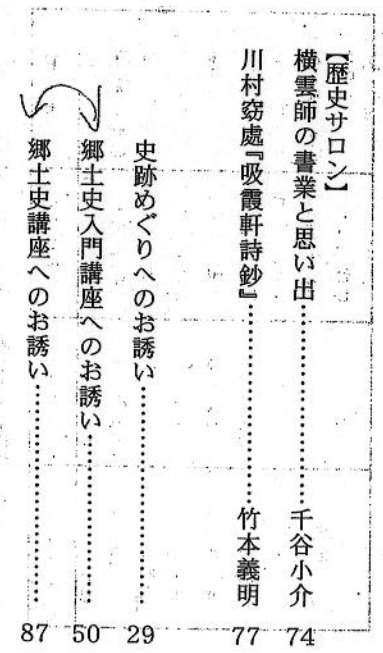 【歴史サロン】
横雲師の書業と思い出……………………千谷小介 74
川村窈處『吸霞軒詩鈔』……………………竹本義明 77
史跡めぐりへのお誘い……………………29
郷土史入門講座へのお誘い……………………50
郷土史講座へのお誘い……………………87